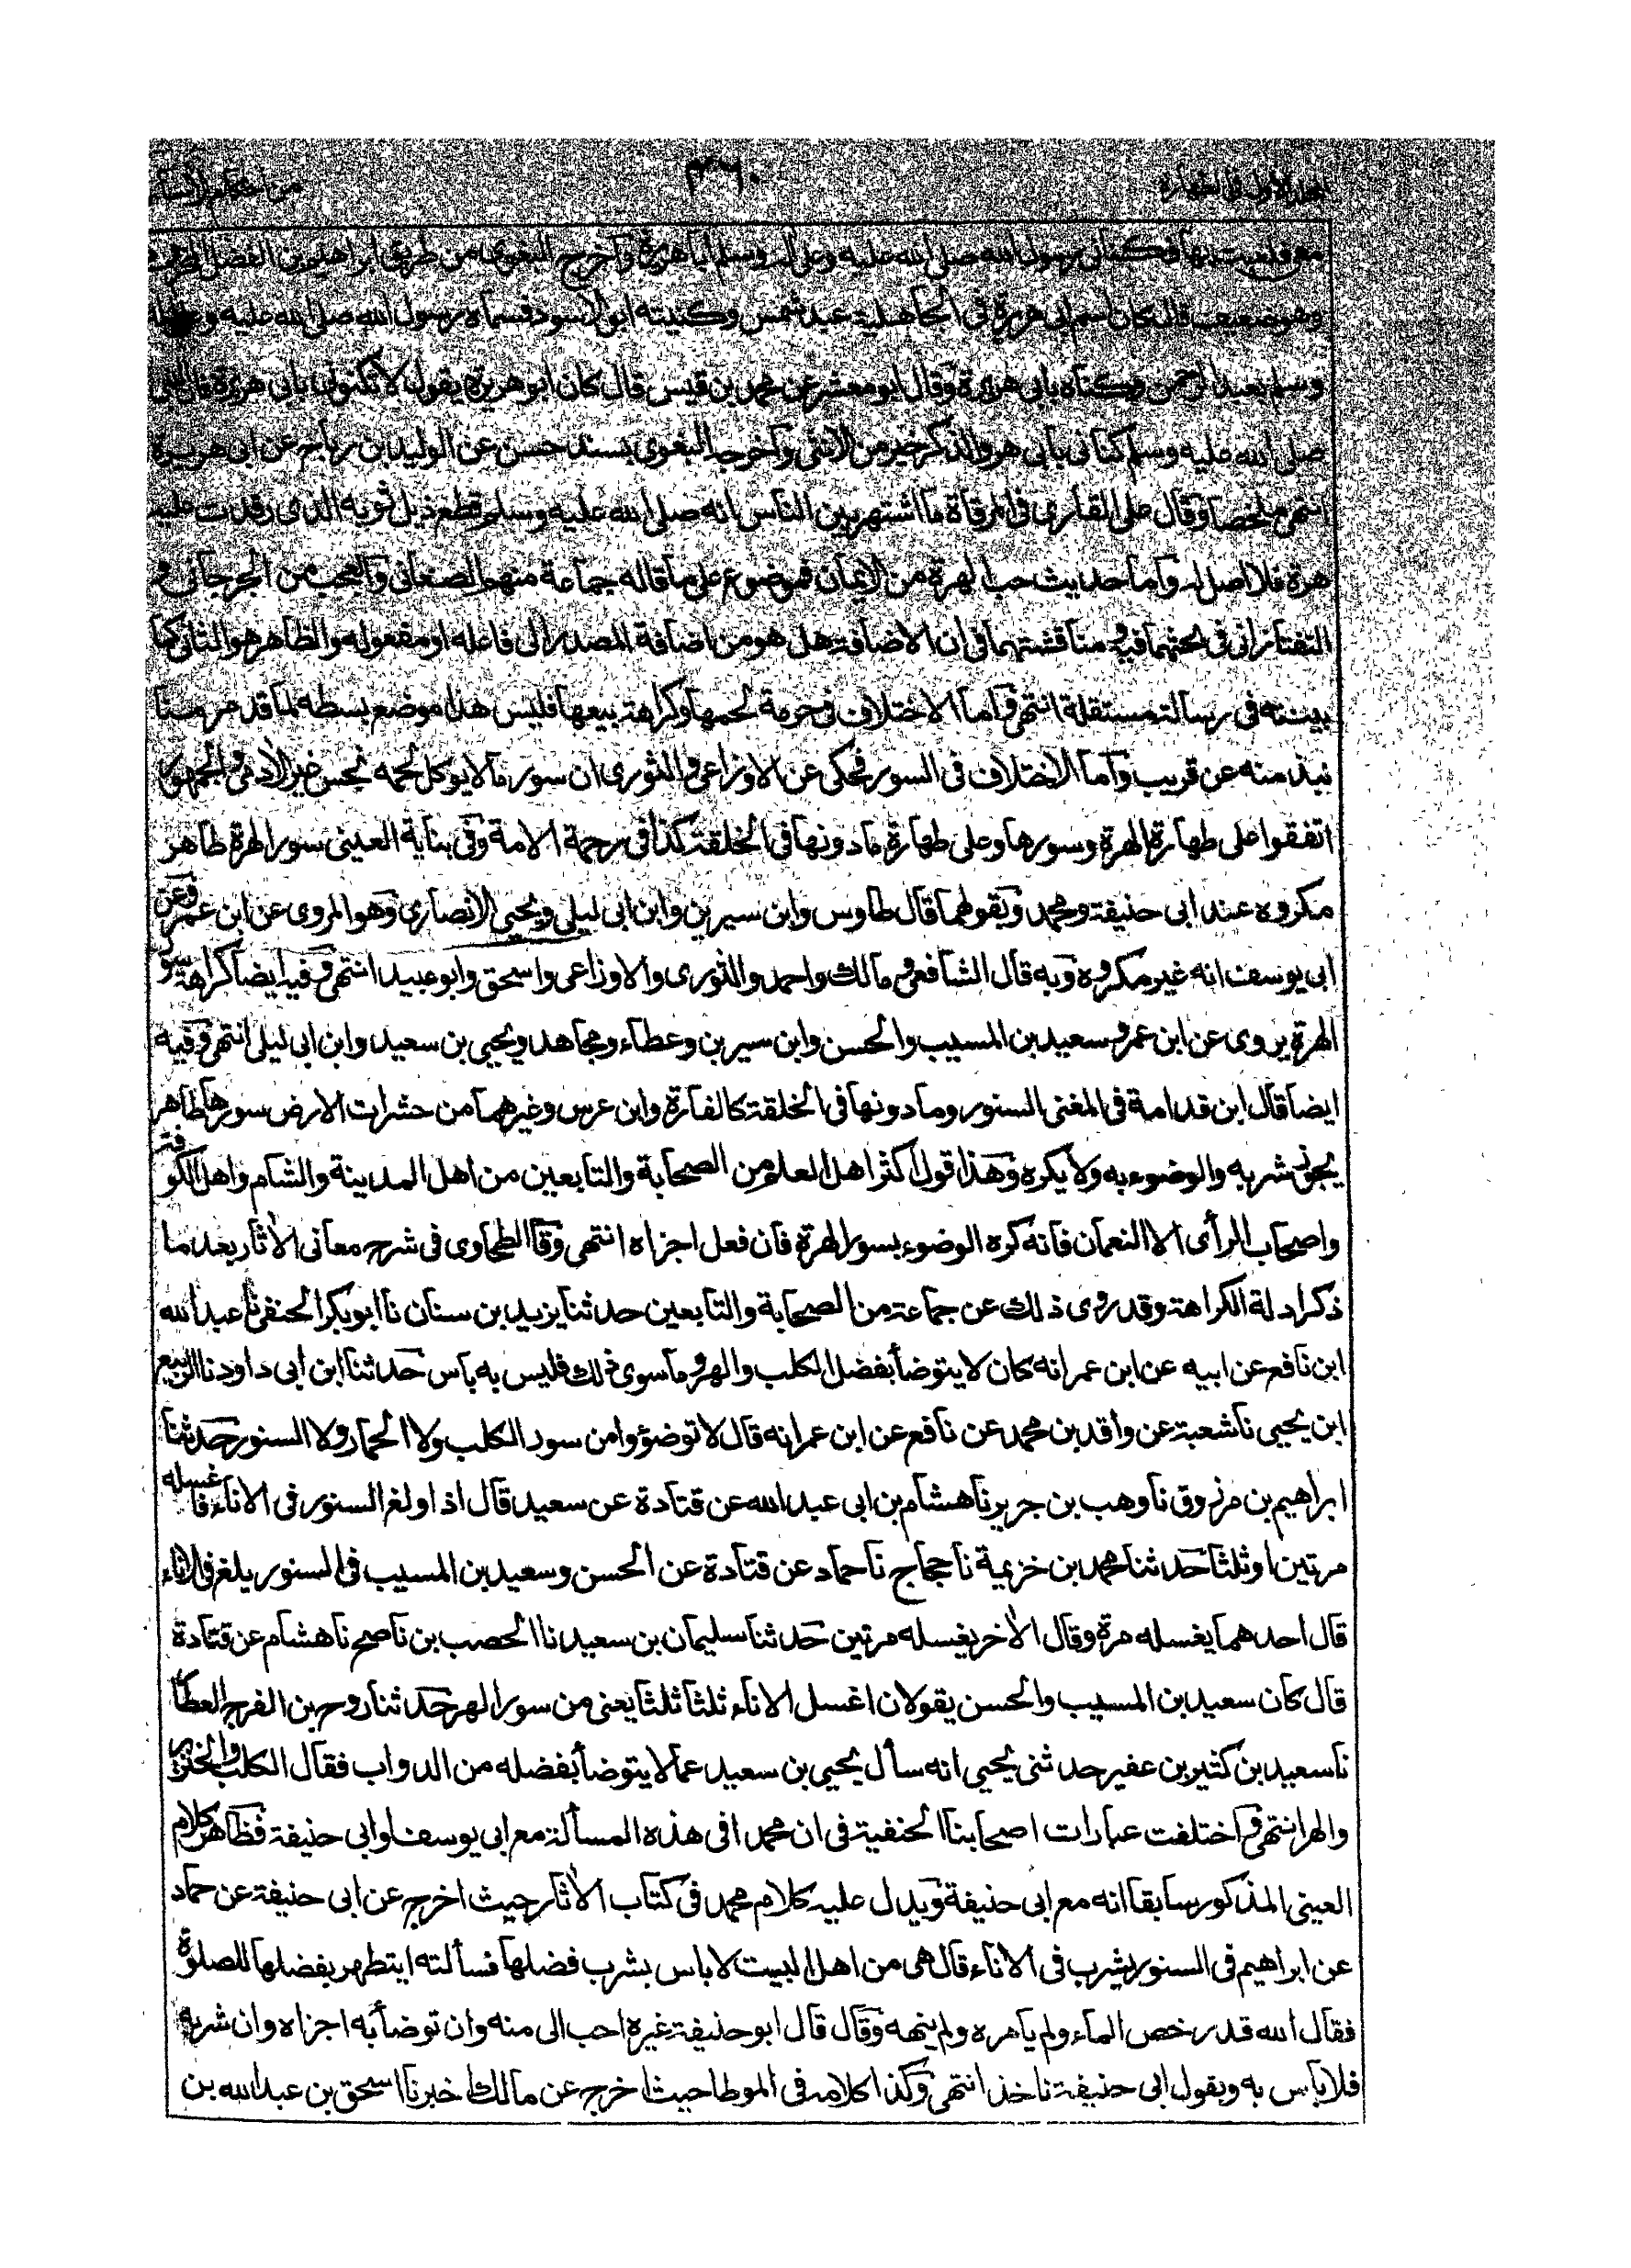 المجلد الاول فى الطهارة ٤٦٠
معى فلعبت بها فكنانى رسول الله صلى الله عليه وعلى اله وسلم اباهريرة وآخرج البغوى من طريق ابراهيم بن الفضل المخزومى
وهو ضعيف قال كان اسم ابى هريرة فى الجاهلية عبد شمس وكنيته ابو الاسود فسماه رسول الله صلى الله عليه وعلى اله
وسلم بعبد الرحمن وكناه بابى هريرة وقال ابو معشر عن محمد بن قيس قال كان ابو هريرة يقول لا تكنونى بابى هريرة فان النبى
صلى الله عليه وسلم كنانى بابى هر والذكر خير من الانثى وآخرجه البغوى بسند حسن عن الوليد بن رباح عن ابى هريرة
انتهى ملخصا وقال على القارى فى المرقاة ما اشتهر بين الناس انه صلى الله عليه وسلم قطع ذيل ثوبه الذى رقدت عليه
هرة فلا اصل له وآما حديث حب الهرة من الايمان فموضوع على ما قاله جماعة منهم الصغانى والعجب من الجرجانى و
التفتازانى فى بحثهما فيه ومناقشتهما فى ان الاضافة هل هو من اضافة المصدر الى فاعله او مفعوله والظاهر هو الثانى كما
بينته فى رسالة مستقلة انتهى وآما الاختلاف فى حرمة لحمها وكراهة بيعها فليس هذا موضع بسطه لما قد مر منا
نبذ منه عن قريب وآما الاختلاف فى السور فحكى عن الاوزاعى والثورى ان سور ما لا يوكل لحمه نجس غير الادمى والجمهور
اتفقوا على طهارة الهرة وسورها وعلى طهارة ما دونها فى الخلقة كذا فى رحمة الامة وفى بناية العينى سور الهرة طاهر
مكروه عند ابى حنيفة ومحمد وبقولهما قال طاوس وابن سيرين وابن ابى ليلى ويحيى الانصارى وهو المروى عن ابن عمر وعن
ابى يوسف انه غير مكروه وبه قال الشافعى ومالك واحمد والثورى والاوزاعى واسحق وابو عبيد انتهى وفيه ايضا كراهة سور
الهرة يروى عن ابن عمر وسعيد بن المسيب والحسن وابن سيرين وعطاء ومجاهد ويحيى بن سعيد وابن ابى ليلى انتهى وفيه
ايضا قال ابن قدامة فى المغنى السنور وما دونها فى الخلقة كالفارة وابن عرس وغيرهما من حشرات الارض سورها طاهر
يجوز شربه والوضوء به ولا يكره وهذا قول اكثر اهل العلم من الصحابة والتابعين من اهل المدينة والشام واهل الكوفة
واصحاب الرأى الا النعمان فانه كره الوضوء بسور الهرة فان فعل اجزاه انتهى وقال الطحاوى فى شرح معانى الاثار بعد ما
ذكر ادلة الكراهة وقد روى ذلك عن جماعة من الصحابة والتابعين حدثنا يزيد بن سنان نا ابو بكر الحنفى نا عبد الله
ابن نافع عن ابيه عن ابن عمر انه كان لا يتوضأ بفضل الكلب والهر وما سوى ذلك فليس به بأس حدثنا ابن ابى داود نا الربيع
ابن يحيى نا شعبة عن واقد بن محمد عن نافع عن ابن عمر انه قال لا توضؤوا من سور الكلب ولا الحمار ولا السنور حدثنا
ابراهيم بن مرزوق نا وهب بن جرير نا هشام بن ابى عبد الله عن قتادة عن سعيد قال اذا ولغ السنور فى الاناء فاغسله
مرتين او ثلثا حدثنا محمد بن خزيمة نا حجاج نا حماد عن قتادة عن الحسن وسعيد بن المسيب فى السنور يلغ فى الاناء
قال احدهما يغسله مرة وقال الاخر يغسله مرتين حدثنا سليمان بن سعيد نا الخصب بن ناصح نا هشام عن قتادة
قال كان سعيد بن المسيب والحسن يقولان اغسل الاناء ثلثا ثلثا يعنى من سور الهر حدثنا روح بن الفرج العطا
نا سعيد بن كثير بن عفير حدثنى يحيى انه سأل يحيى بن سعيد عما لا يتوضأ بفضله من الدواب فقال الكلب والخنزير
والهر انتهى واختلفت عبارات اصحابنا الحنفية فى ان محمدا فى هذه المسألة مع ابى يوسف او ابى حنيفة فظاهر كلام
العينى المذكور سابقا انه مع ابى حنيفة ويدل عليه كلام محمد فى كتاب الاثار حيث اخرج عن ابى حنيفة عن حماد
عن ابراهيم فى السنور يشرب فى الاناء قال هى من اهل البيت لا باس بشرب فضلها فسألته ايتطهر بفضلها للصلوة
فقال الله قد رخص الماء ولم يامره ولم ينهه وقال قال ابو حنيفة غيره احب الى منه وان توضأ به اجزاه وان شربه
فلا باس به وبقول ابى حنيفة ناخذ انتهى وكذا كلامه فى الموطا حيث اخرج عن مالك اخبرنا اسحق بن عبد الله بن